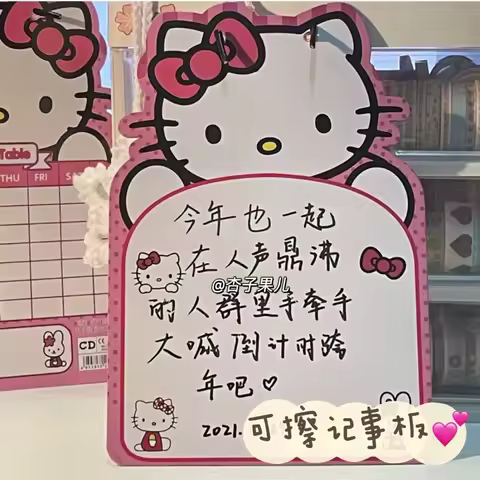 Table
THU FRI S
今年也一起
在人声鼎沸
@杏子果儿
的人群里手牵手
大喊倒计时跨
年吧♡
2021.
CD CE
可擦记事板